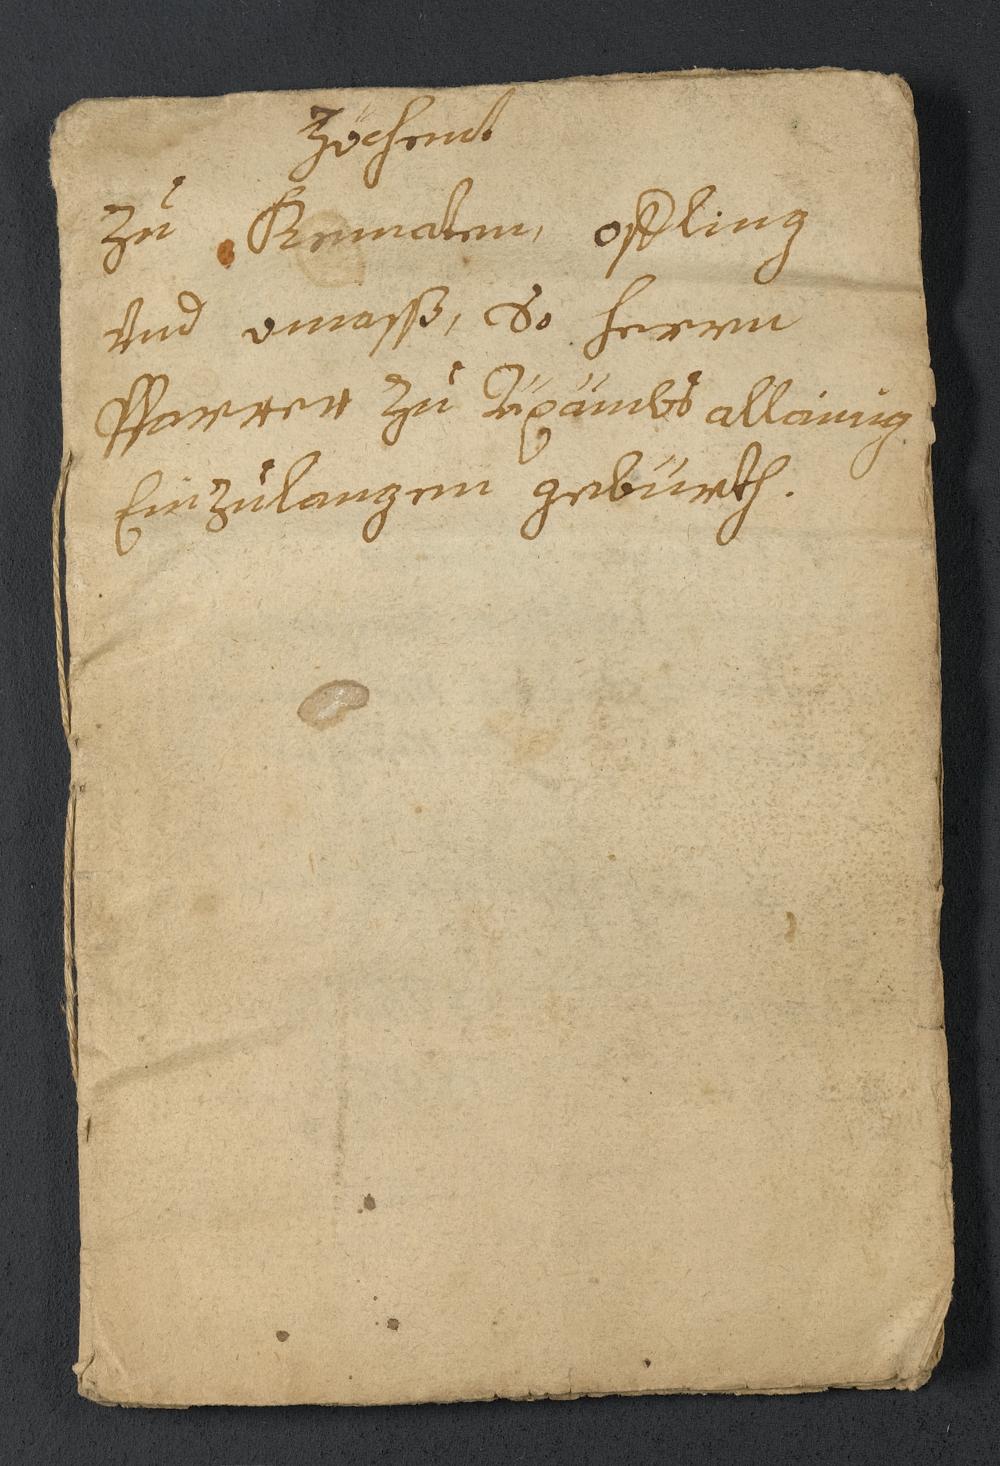 Zöchent
Zu Kematen, oſtling
Vnd omaſß, So herrn
Pfarrer Zu Axämbs allainig
Einzulangen gebürth.